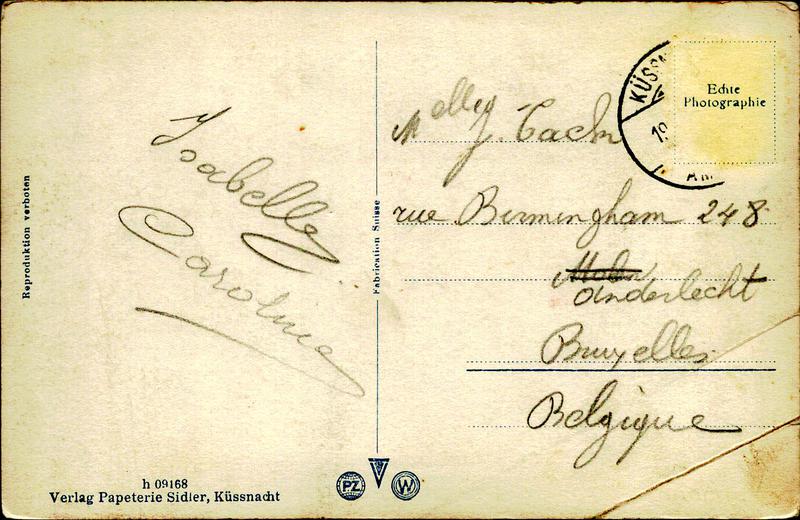 Reproduktion verboten
Isabelle
Caroline
h 09168
Verlag Papeterie Sidler, Küssnacht
Fabrication Suisse
PZ
W
KÜSSN
19
AM
Echte
Photographie
rue Birmingham 248
Anderlecht
Bruxelles
Belgique